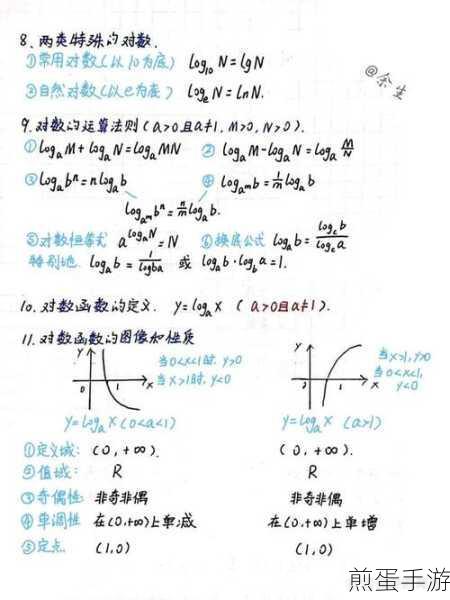 8、两类特殊的对数.
①常用对数(以10为底) log₁₀N=lgN
@余生
②自然对数(以e为底) logₑN=lnN.
9、对数的运算法则(a>0且a≠1,M>0,N>0).
①logₐM+logₐN=logₐMN ②logₐM-logₐN=logₐ M/N
③logₐbⁿ=nlogₐb ④log_{a^m}b=1/m logₐb
log_{a^m}bⁿ=n/m logₐb.
⑤对数恒等式 a^{logₐN}=N ⑥换底公式 logₐb=log_c b/log_c a
特别地. logₐb=1/log_b a 或 logₐb·log_b a=1.
10、对数函数的定义. y=logₐx (a>0且a≠1).
11、对数函数的图像和性质
y x 0 1 当0<x<1时,y>0
当x>1时,y<0
y x 0 1 当x>1,y>0
当0<x<1,
y<0
y=logₐx(0<a<1) y=logₐx (a>1)
①定义域: (0,+∞). (0,+∞).
②值域: R R
③奇偶性 非奇非偶 非奇非偶
④单调性 在(0,+∞)上单减 在(0,+∞)上单增
⑤定点 (1,0) (1,0)
煎蛋手游